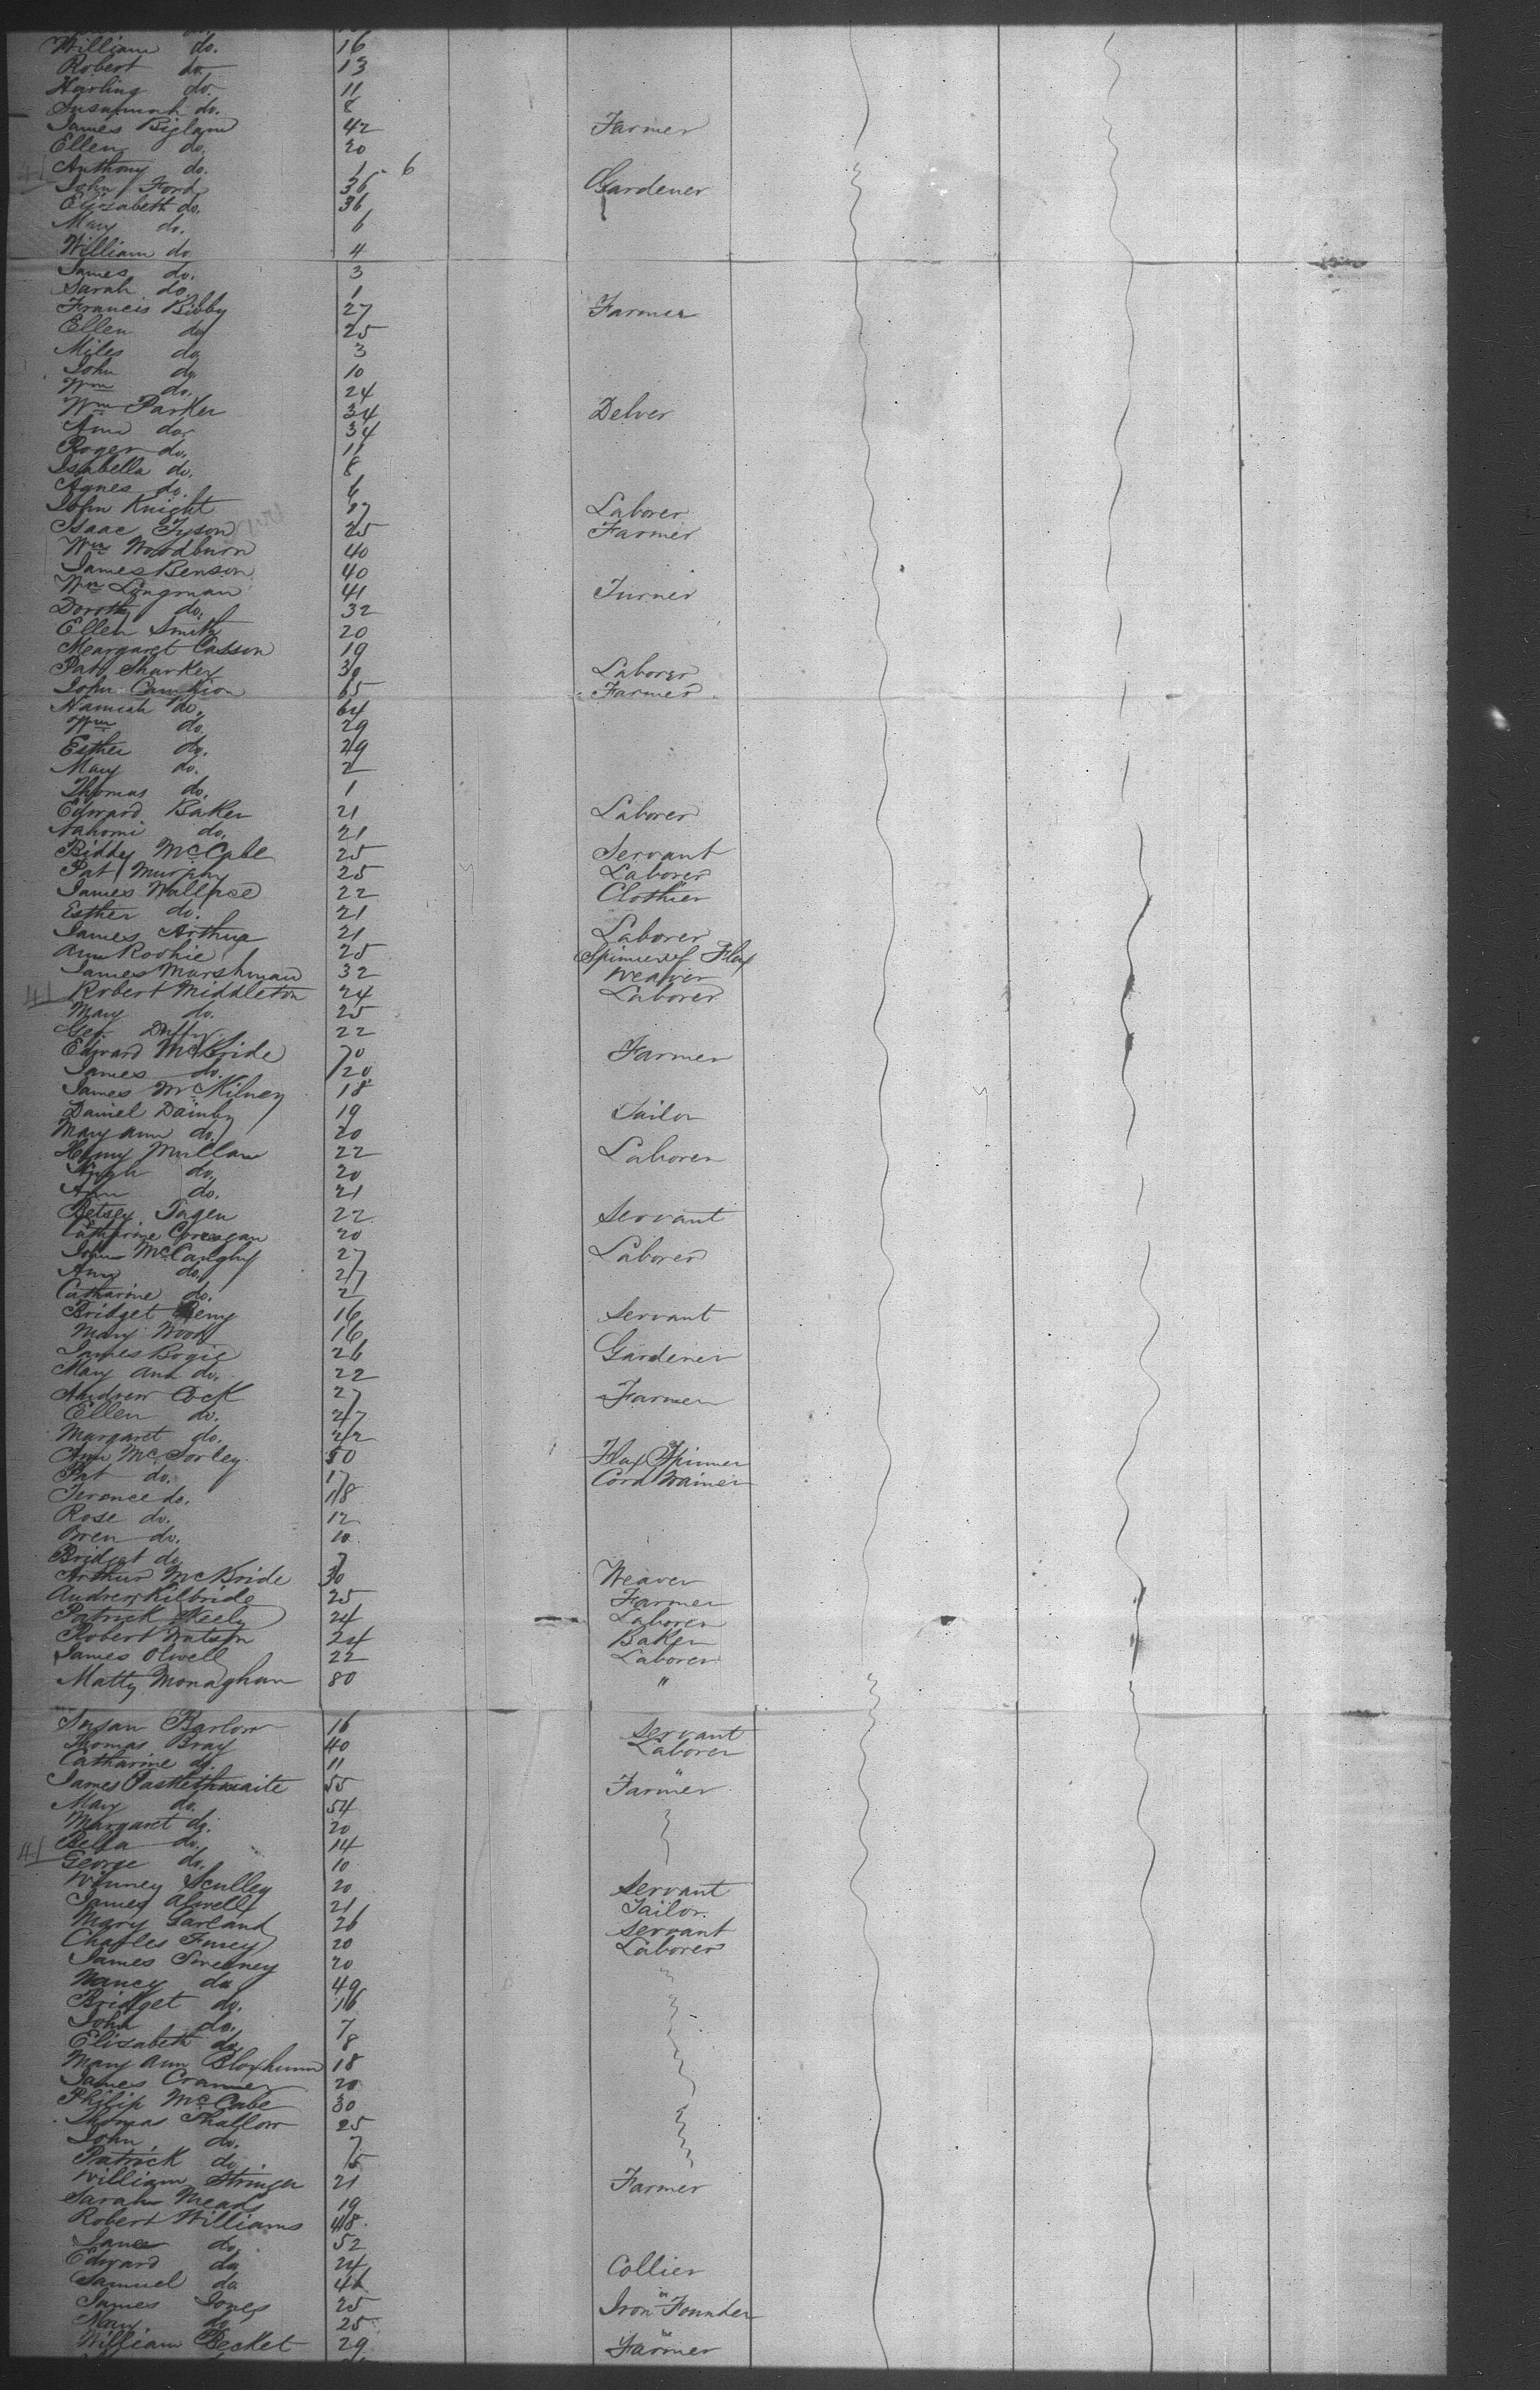 William do. 16
Robert do. 13
Harling do. 11
Susannah do. 8
James Bigland 42 Farmer
Ellen do. 20
Anthony do. 1 - 6
John Ford 36 Gardener
Elizabeth do. 36
Mary do. 6
William do 4
James do. 3
Sarah do. 1
Francis Bibby 27 Farmer
Ellen do 25
Miles do 3
John do 10
Wm do. 24
Wm Parker 34 Delver
Ann do. 34
Roger do. 11
Isabella do. 8
Agnes do. 6
John Knight 27 Laborer
Isaac Tyson 25 Farmer
Wm Woodburn 40
James Benson 40
Wm Lingman 41 Turner
Dorothy do. 32
Ellen Smith 20
Meargaret Casson 19
Pat Sharkey 30 Laborer
John 65 Farmer
Hannah do. 64
Wm do. 29
Esther do. 29
Mary do. 2
Thomas do. 1
Edward Baker 21 Laborer
Nahomi do. 21
Biddy McCabe 25 Servant
Pat Murphy 25 Laborer
James Wallace 22 Clothier
Esther do. 21
James Arthur 21 Laborer
Ann Roohie 25 Spinner of Flax
James Marshman 32 Weaver
41 Robert Middleton 24 Laborer
Mary do. 25
Geo. Duffy 22
Edward McBride 70 Farmer
James do. 20
James McKilney 18
Daniel Dainby 19 Tailor
Mary ann do. 20
Henry Mullan 22 Laborer
Hugh do. 20
Ann do. 21
Betsey Tagen 22 Servant
Catharine Corragan 20
John McCaughy 27 Laborer
Ann do. 27
Catharine do. 2
Bridget Reny 16 Servant
Mary Wood 16
James Bogie 26 Gardener
Mary Ann do. 22
Andrew Cock 27 Farmer
Ellen do. 27
Margaret do. 22
Ann McSorley 50 Flax Spinner
Pat do. 17 Cord Wainer
Terence do. 18
Rose do. 12
Owen do. 10
Bridgat do 7
Arthur McBride 30 Weaver
Andrew Kilbride 25 Farmer
Patrick Keely 24 Laborer
Robert Watson 24 Baker
James Olwell 22 Laborer
Matty Monaghan 80 "
Susan Barlow 16 Servant
Thomas Bray 40 Laborer
Catharine do. 11
James Pasthethwaite 55 Farmer
Mary do. 54
Margaret do. 20
41 Bella do. 14
George do. 10
Winney Sculley 20 Servant
James Alwell 21 Tailor
Mary Garland 26 Servant
Charles Furey 20 Laborer
James Sweeney 20
Nancy do 49
Bridget do. 16
John do. 7
Elizabeth do 8
Mary ann Bloxhumn 18
James Cranney 20
Philip McCabe 30
Thomas Shallow 25
John do. 7
Patrick do. 5
William Stringer 21 Farmer
Sarah Meads 19
Robert Williams 48
Jane do. 52
Edward do 24 Collier
Samuel do 46 "
James Jones 25 Iron Founder
Mary do 25 "
William Becket 29 Farmer